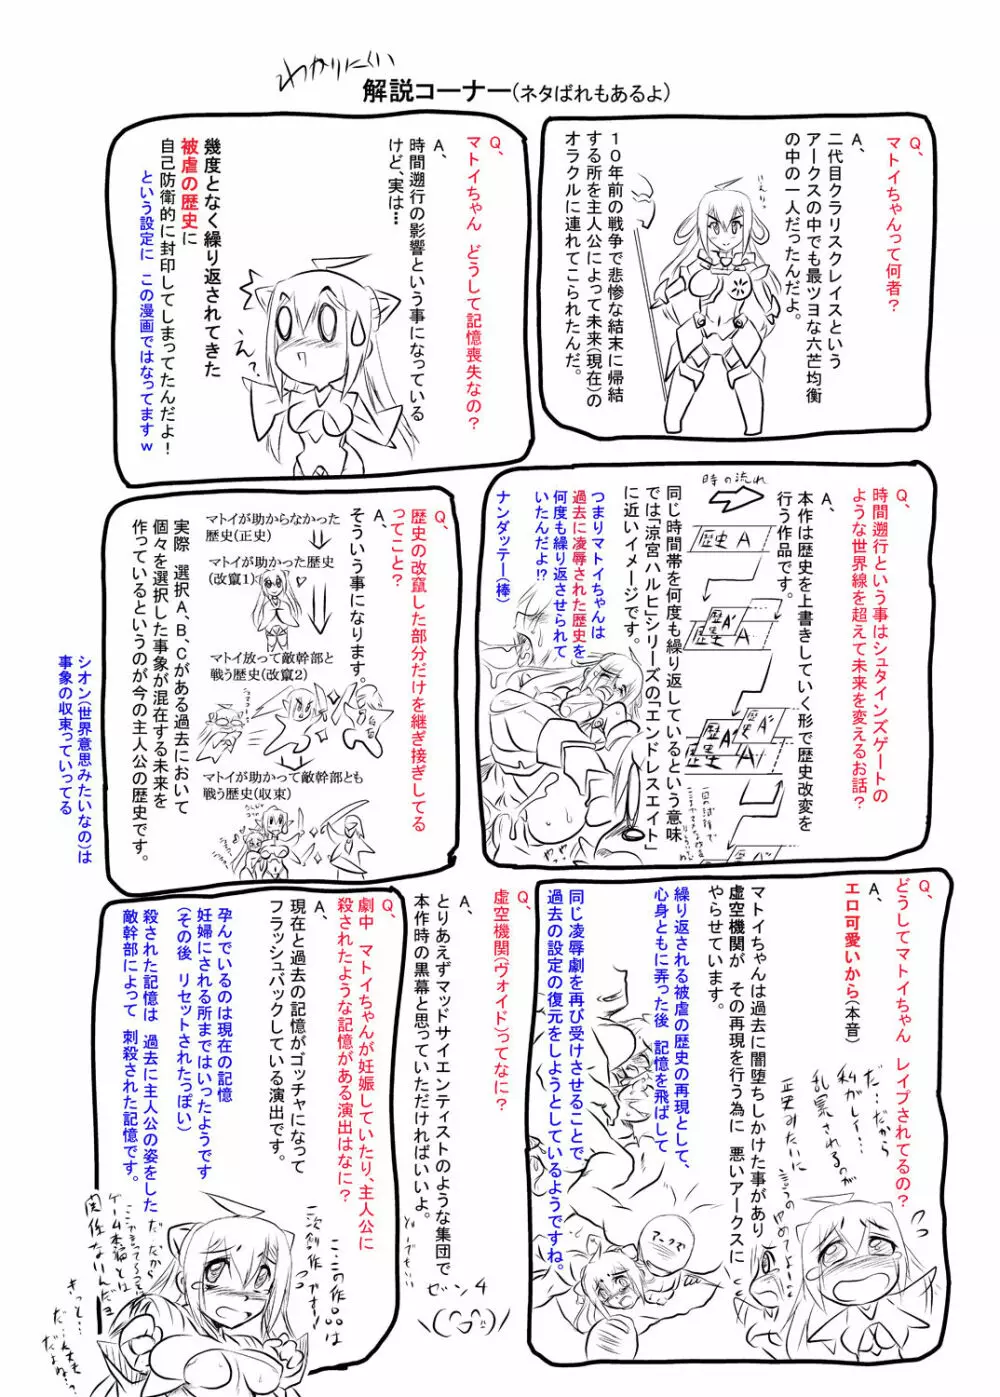 わかりにくい
解説コーナー(ネタばれもあるよ)
Q、
マトイちゃんって何者？
A、
二代目クラリスクレイスという
アークスの中でも最ツヨな六芒均衡
の中の一人だったんだよ。
１０年前の戦争で悲惨な結末に帰結
する所を主人公によって未来(現在)の
オラクルに連れてこられたんだ。
Q、
マトイちゃん　どうして記憶喪失なの？
A、
時間遡行の影響という事になっている
けど、実は…
幾度となく繰り返されてきた
被虐の歴史に
自己防衛的に封印してしまってたんだよ！
という設定に　この漫画ではなってますｗ
え？
Q、
時間遡行という事はシュタインズゲートの
ような世界線を超えて未来を変えるお話？
A、
本作は歴史を上書きしていく形で歴史改変を
行う作品です。
時の流れ
歴史 A
歴史
A'
歴史
A
同じ時間帯を何度も繰り返しているという意味
では「涼宮ハルヒ」シリーズの「エンドレスエイト」
に近いイメージです。
つまりマトイちゃんは
過去に凌辱された歴史を
何度も繰り返させられて
いたんだよ!?
ナンダッテー(棒)
Q、
歴史の改竄した部分だけを継ぎ接ぎしてる
ってこと？
A、
そういう事になります。
マトイが助からなかった
歴史(正史)
マトイが助かった歴史
(改竄1)
マトイ放って敵幹部と
戦う歴史(改竄2)
マトイが助かって敵幹部とも
戦う歴史(収束)
実際　選択A、B、Cがある過去において
個々を選択した事象が混在する未来を
作っているというのが今の主人公の歴史です。
シオン(世界意思みたいなの)は
事象の収束っていってる
Q、
どうしてマトイちゃん　レイプされてるの？
A、
エロ可愛いから(本音)
マトイちゃんは過去に闇堕ちしかけた事があり
虚空機関が　その再現を行う為に　悪いアークスに
やらせています。
繰り返される被虐の歴史の再現として、
心身ともに弄った後　記憶を飛ばして
同じ凌辱劇を再び受けさせることで
過去の設定の復元をしようとしているようですね。
だ…だから
私がレイ…
乱暴されるのが
正史みたいに
言うのやめてよー
Q、
虚空機関(ヴォイド)ってなに？
A、
とりあえずマッドサイエンティストのような集団で
本作時の黒幕と思っていただければいいよ。
ゼン４
Q、
劇中　マトイちゃんが妊娠していたり、主人公に
殺されたような記憶がある演出はなに？
A、
現在と過去の記憶がゴッチャになって
フラッシュバックしている演出です。
孕んでいるのは現在の記憶
妊婦にされる所まではいったようです
(その後　リセットされたっぽい)
殺された記憶は　過去に主人公の姿をした
敵幹部によって　刺殺された記憶です。
二次創作です！
だ、だから
ゲーム本編とは
関係ないんだよ
きっと…